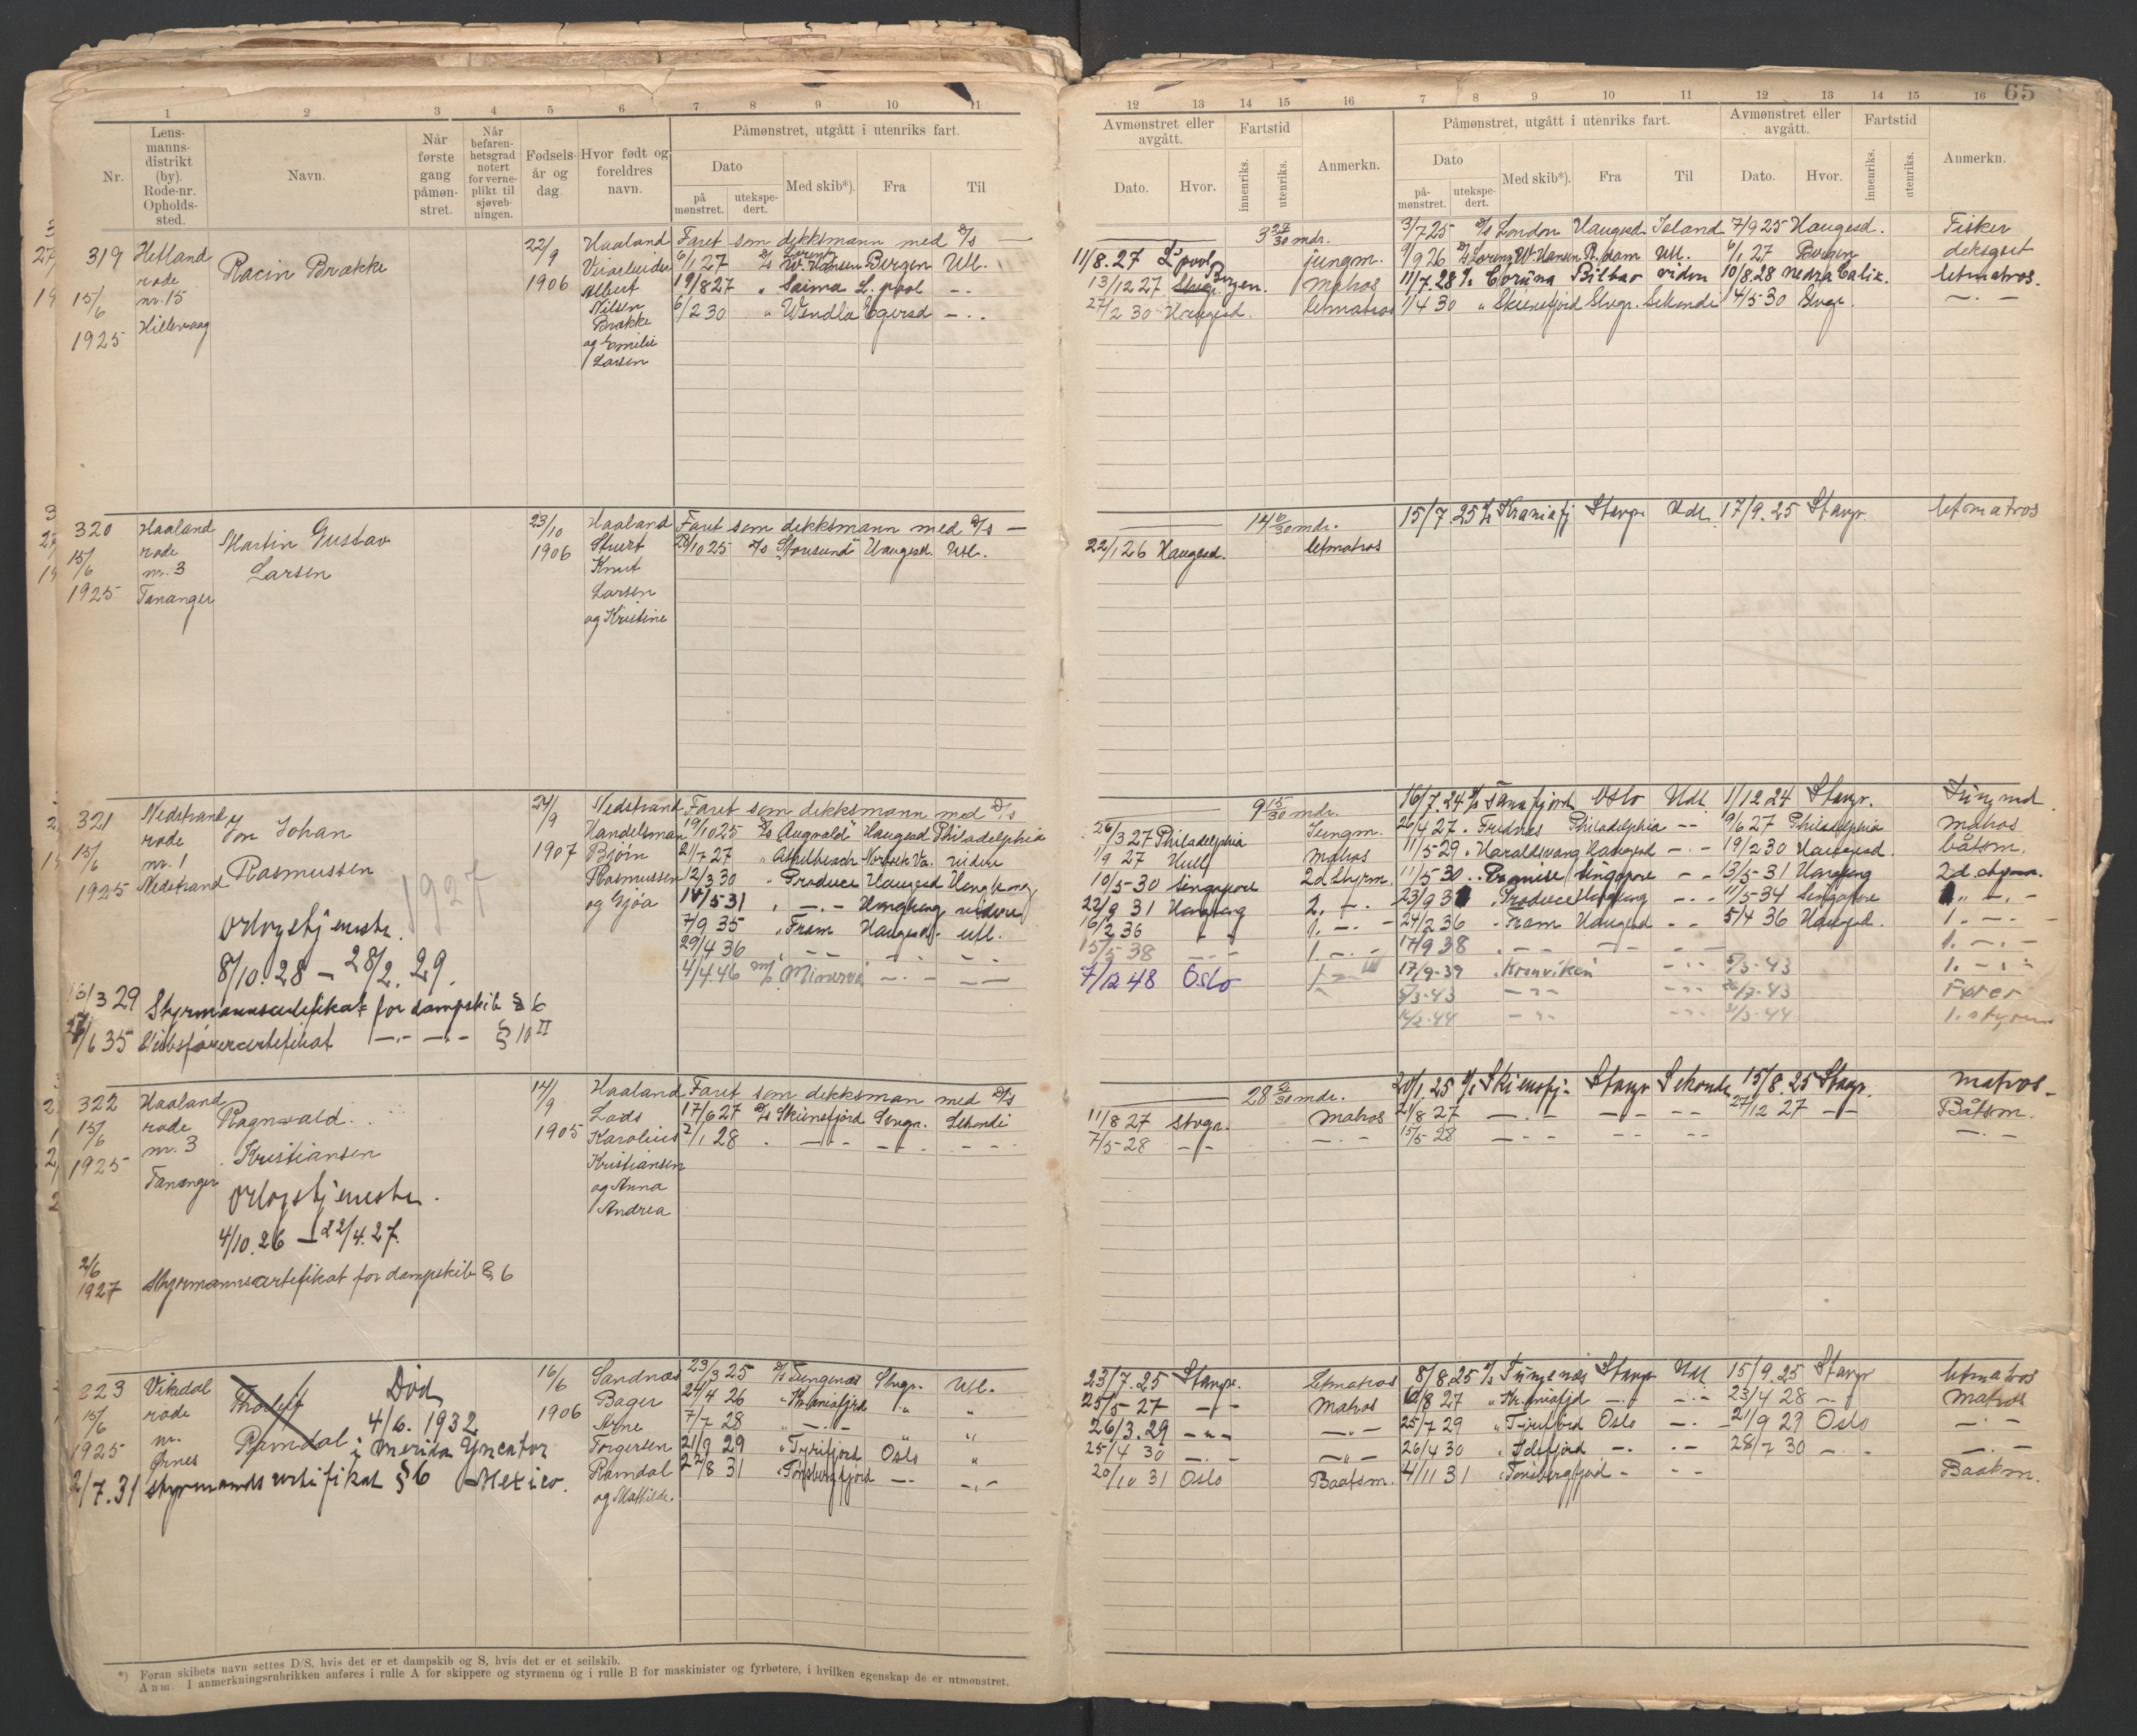 65
1 2 3 4 5 6 7 8 9 10 11
Nr.
Lens-
manns-
distrikt
(by).
Rode-nr.
Opholds-
sted.
Navn.
Når
første
gang
påmøn-
stret.
Når
befaren-
hetsgrad
notert
for verne-
plikt til
sjøveb-
ningen.
Fødsels-
år og
dag.
Hvor født og
foreldres
navn.
Påmønstret, utgått i utenriks fart.
Dato
på
mønstret.
utekspe-
dert.
Med skib*).
Fra
Til
12 13 14 15 16 7 8 9 10 11 12 13 14 15 16
Avmønstret eller
avgått.
Dato.
Hvor.
Fartstid
innenriks.
utenriks.
Anmerkn.
Påmønstret, utgått i utenriks fart.
Dato
på-
mønstret.
utekspe-
dert.
Med skib*).
Fra
Til
Avmønstret eller
avgått.
Dato.
Hvor.
Fartstid
innenriks.
utenriks.
Anmerkn.
319
15/6
1925
Hetland
rode
nr. 15
Hillevaag
Racin Brække
22/9
1906
Haaland
Albert
Nilsen
Brække
og Emilie
Larsen
Faret som dekksmann med D/S —
6/1 27 D/S Lorentz W. Hansen Bergen Utl.
19/8 27 " Saima L.pool -.-
6/2 30 " Wendla Egersd -.-
3 27/30 mdr.
11/8.27 L'pool jungm.
13/12 27 Bergen. Matros
27/2 30 Haugesd. letmatros
3/7 25 D/S London Haugesd. Island 7/9 25 Haugesd. Fisker
9/9 26 D/S Lorentz W. Hansen R.dam Utl. 6/1 27 Bergen deksgut
11/7.28 D/S Coruna Bilbao viden 10/8.28 letmatros.
1/4 30 " Skiensfjord Stvgr. Sekondi 4/5-30 Stvgr. -.-
320
15/6
1925
Haaland
rode
nr. 3
Tananger
Martin Gustav
Larsen
23/10
1906
Haaland
Knut
Larsen
og Kristine
Faret som dekksmann med D/S —
28/10 25 D/S Storesund Haugesd. Utl.
14 6/30 mdr.
22/1 26 Haugesd. letmatros
15/7.25 D/S Kraniafj Stavgr Udl. 17/9.25 Stavgr letmatros
321
15/6
1925
Nedstrand
rode
nr. 1
Nedstrand
Jon Johan
Rasmussen
1927
24/9
1907
Nedstrand
Handelsman
Bjørn
Rasmussen
og Gjøa
Faret som dekksmann med D/S
19/10 25 D/S Augvald Haugesd Philadelphia
21/7 27 " Athelbeach Norfolk Va. videre
12/3 30 " Produce Haugesd Hongkong
14/5 31 " -.- Hongkong videre
7/9 35 " Fram Haugesd. utl.
29/4 36 " - - - - - -
4/4.46 M/S Minerva -.- -.-
9 15/30 mdr.
26/3 27 Philadelphia Jungm.
1/9 27 Hull Matros
10/5-30 Singapore 2d Styrm.
22/9 31 Hongkong 2. -.-
16/2 36 " - 1. -.-
15/5 38 -.- 1. -.-
7/12 48 Oslo
16/7.24 D/S Tanafjord Oslo Udl 11/12 24 Stavgr. Jungmd
26/4 27 " Fridnæs Philadelphia -- 9/6 27 Philadelphia Matros
11/5-29 " Haraldsvang Haugesd -.- 19/2 30 Haugesd. båtsm.
11/5-30 " Promise Singapore -- 13/5-31 Hongkong 2d styrm.
23/9 31 " Produce Hongkong -.- 11/5-34 Singapore
24/2 36 " Fram Haugesd -- 5/4 36 Haugesd. 1. -.-
17/9 38 " -.- -- -- 1. -.-
17/9.39 " Kronviken -.- 5/3.43 1. -.-
5/3.43 -.- -.- Fører
-.- -.- 1. styrm
orlogstjeneste.
8/10.28 – 28/2.29.
13/3 29 Styrmannscertifikat for dampskib § 6
27/6 35 Skibsførercertifikat -.- -.- § 10 II
322
15/6
1925
Haaland
rode
nr. 3
Tananger
Ragnvald
Kristiansen
14/9
1905
Haaland
Lods
Karolius
Kristiansen
og Anna
Andrea
Faret som dekksman med D/S
17/6 27 D/S Skiensfjord Stvgr. Sekondi
2/1 28 " -.- -.- -.-
28 2/30 mdr.
11/8 27 Stvgr. Matros
7/5-28 -.- -.-
20/1.25 D/S Skiensfj. Stavgr Sekondi 15/8.25 Stavgr. matros
21/8 27 -.- -- -- 27/12 27 -- Båtsm.
15/5-28 -.- -- -- -.-
orlogstjeneste.
4/10.26 – 22/4.27.
2/6
1927 Styrmannscertifikat for dampskib § 6
323
15/6
1925
Vikedal
rode
nr.
Ørnes
Thorleif
Ramdal
Død
4/6.1932
i Merida Yucatan
Mexico.
2/7.31 styrmandscertifikat § 6
16/6
1906
Sandnæs
Bager
Arne
Torgersen
Ramdal
og Mathilde.
23/3 25 D/S Tungenæs Stvgr. Utl.
24/4 26 " Kraniafjord " "
7/7 28 " -.- " "
21/9 29 " Tyrifjord Oslo "
22/8 31 " Tønsbergfjord -.- -.-
23/7.25 Stavgr. Letmatros
25/5 27 -.- Matros
26/3.29 -.- -.-
25/4 30 -.- -.-
20/10 31 Oslo Baatsm.
8/8.25 D/S Tungenæs Stavgr Udl 15/9.25 Stavgr letmatros
10/8 27 " Kraniafjd -.- -.- 23/4 28 -.- Matros
25/7 29 " Tyrifjord Oslo -.- 21/9 29 Oslo -.-
26/4 30 " Idefjord -.- -.- 28/7 30 -.- -.-
4/11 31 " Tønsbergfjord - -- Baatsm.
*) Foran skibets navn settes D/S, hvis det er et dampskib og S, hvis det er et seilskib.
Anm. I anmerkningsrubrikken anføres i rulle A for skippere og styrmenn og i rulle B for maskinister og fyrbøtere, i hvilken egenskap de er utmønstret.